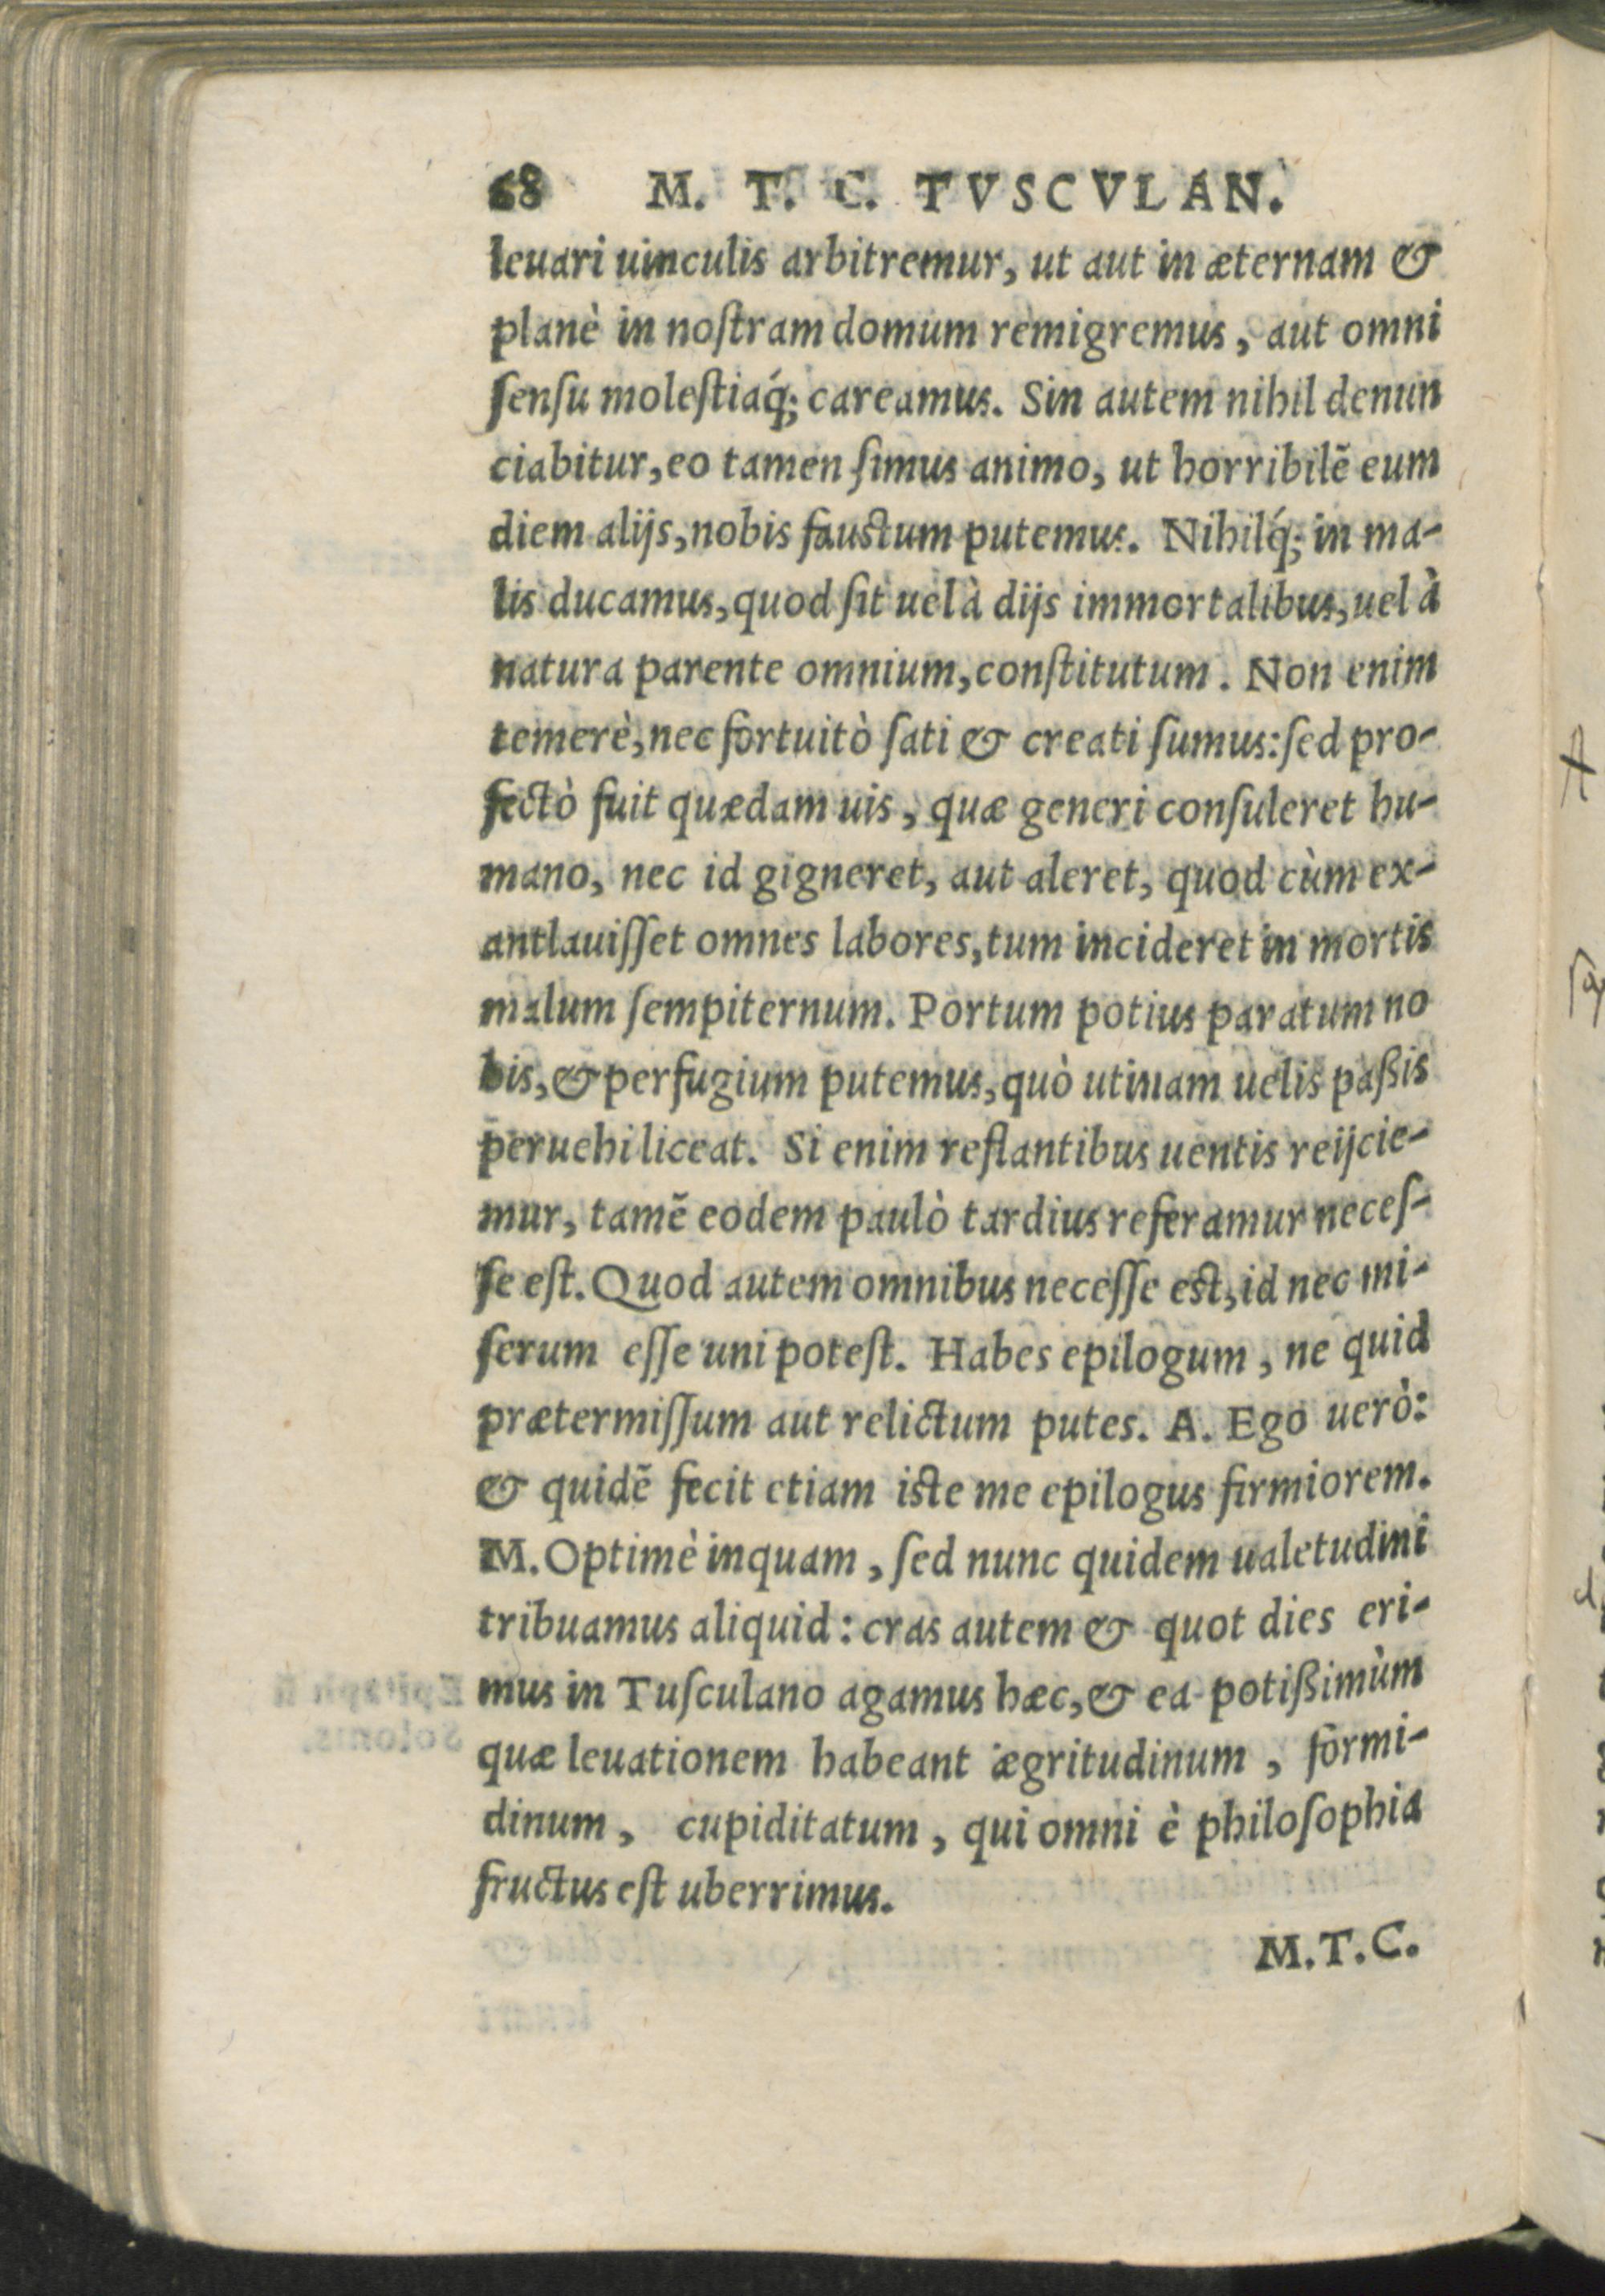 68 M. T. C. TVSCVLAN.
leuari uinculis arbitremur, ut aut in æternam &
planè in noſtram domum remigremus, aut omni
ſenſu moleſtiaq́; careamus. Sin autem nihil denun
ciabitur, eo tamen ſimus animo, ut horribilẽ eum
diem alijs, nobis fauſtum putemus. Nihilq́; in ma-
lis ducamus, quod ſit uel à dijs immortalibus, uel à
natura parente omnium, conſtitutum. Non enim
temerè, nec fortuitò ſati & creati ſumus: ſed pro-
fectò fuit quædam uis, quæ generi conſuleret hu-
mano, nec id gigneret, aut aleret, quod cùm ex-
antlauiſſet omnes labores, tum incideret in mortis
malum ſempiternum. Portum potius paratum no
bis, & perfugium putemus, quò utinam uelis paßis
peruehi liceat. Si enim reflantibus uentis reijcie-
mur, tamẽ eodem paulò tardius referamur neceſ-
ſe eſt. Quod autem omnibus neceſſe eſt, id nec mi-
ſerum eſſe uni poteſt. Habes epilogum, ne quid
prætermiſſum aut relictum putes. A. Ego uerò:
& quidẽ fecit etiam iſte me epilogus firmiorem.
M. Optimè inquam, ſed nunc quidem ualetudini
tribuamus aliquid: cras autem & quot dies eri-
mus in Tuſculano agamus hæc, & ea potißimùm
quæ leuationem habeant ægritudinum, formi-
dinum, cupiditatum, qui omni è philoſophia
fructus eſt uberrimus.
M.T.C.